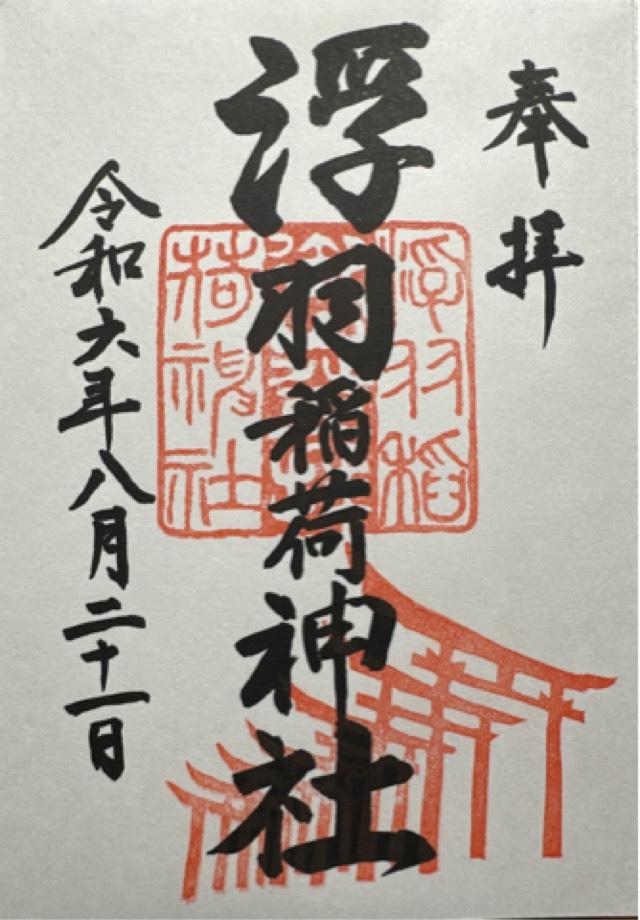 奉拝
浮羽稲荷神社
令和六年八月二十一日
浮羽稲
荷神社